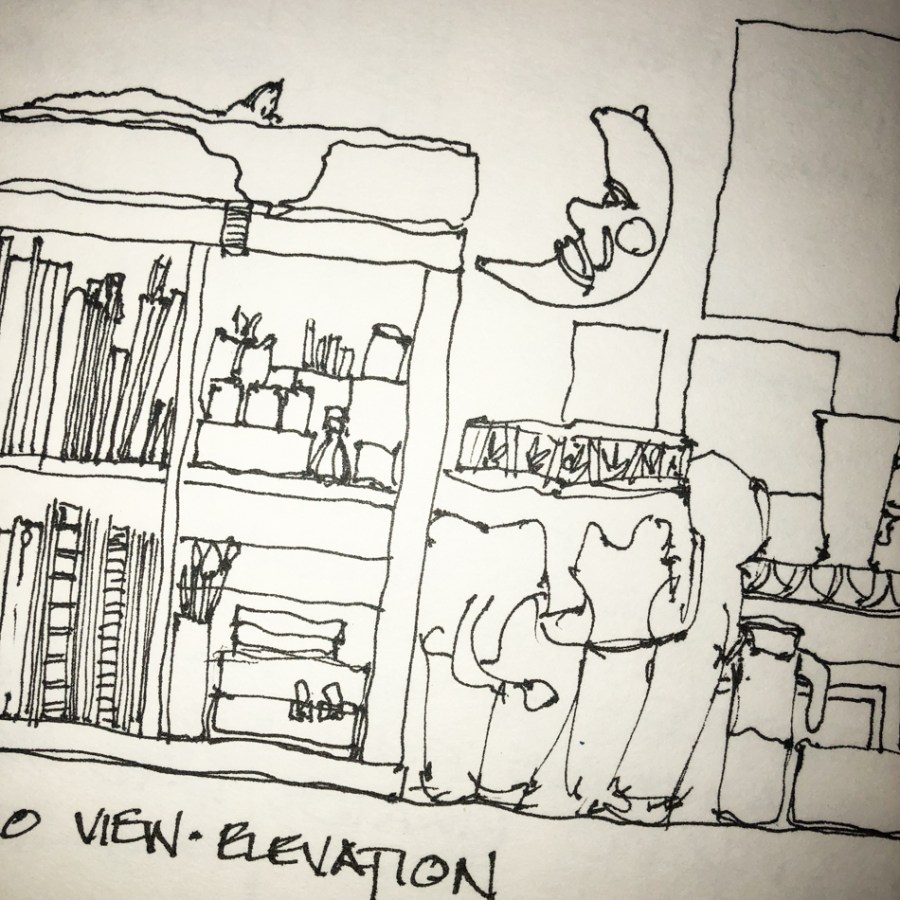 O VIEW · ELEVATION